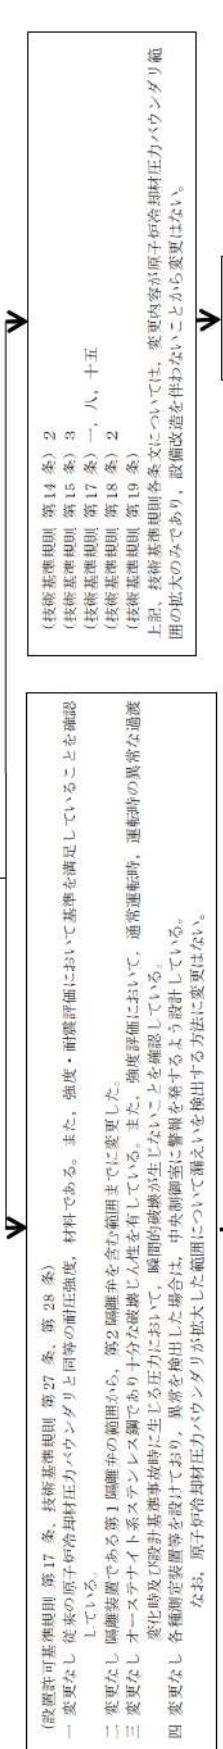 (設置許可基準規則 第17 条、技術基準規則 第27 条、第 28 条)
一 変更なし 従来の原子炉冷却材圧力バウンダリと同等の耐圧強度，材料である。また，強度・耐震評価において基準を満足していることを確認
している。
二 変更なし 隔離装置である第1隔離弁の範囲から，第2隔離弁を含む範囲までに変更した。
三 変更なし オーステナイト系ステンレス鋼であり十分な破壊じん性を有している。また，強度評価において，通常運転時，運転時の異常な過渡
変化時及び設計基準事故時に生じる圧力において，瞬間的破壊が生じないことを確認している。
四 変更なし 各種測定装置等を設けており，異常を検出した場合は，中央制御室に警報を発するよう設計している。
なお，原子炉冷却材圧力バウンダリが拡大した範囲について漏えいを検出する方法に変更はない。
(技術基準規則 第14 条) 2
(技術基準規則 第15 条) 3
(技術基準規則 第17 条) 一，八，十五
(技術基準規則 第18 条) 2
(技術基準規則 第19 条)
上記，技術基準規則各条文については，変更内容が原子炉冷却材圧力バウンダリ範
囲の拡大のみであり，設備改造を伴わないことから変更はない。